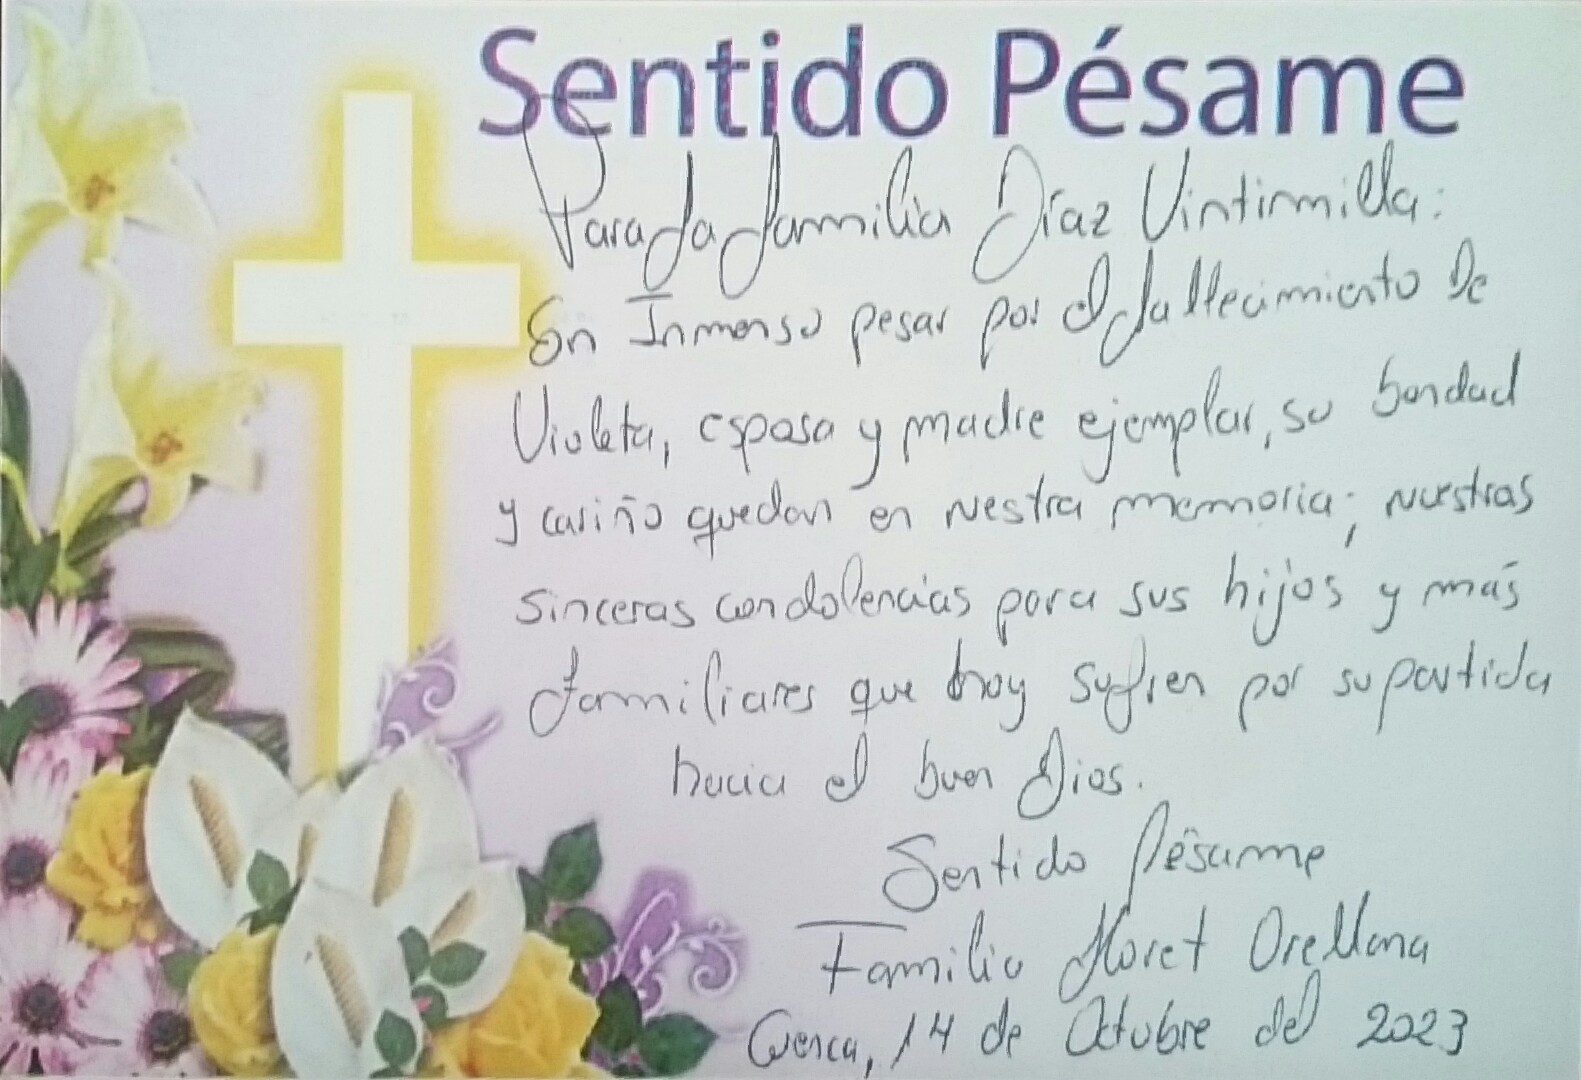 Sentido Pésame
Para la familia Díaz Vintimilla:
En Inmenso pesar por el fallecimiento de
Violeta, esposa y madre ejemplar, su bondad
y cariño quedan en nestra memoria; nuestras
sinceras condolencias para sus hijos y más
familiares que hoy sufren por su partida
hacia el buen Dios.
Sentido Pésame
Familia Moret Orellana
Cuenca, 14 de Octubre del 2023